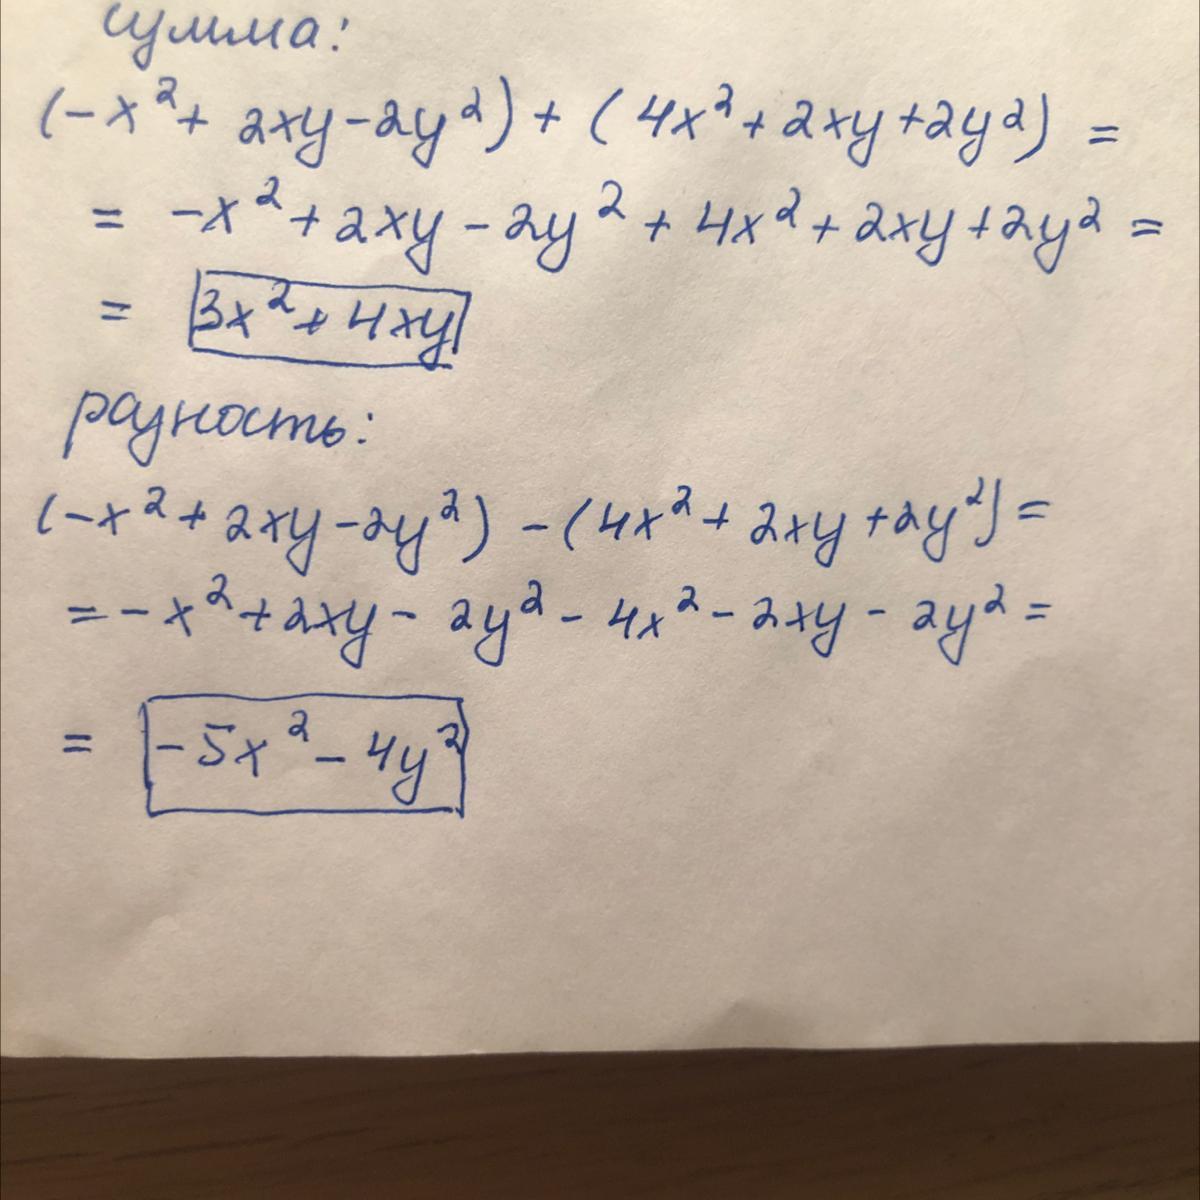 сумма:
(-x² + 2xy - 2y²) + (4x² + 2xy + 2y²) =
= -x² + 2xy - 2y² + 4x² + 2xy + 2y² =
= 3x² + 4xy
разность:
(-x² + 2xy - 2y²) - (4x² + 2xy + 2y²) =
= -x² + 2xy - 2y² - 4x² - 2xy - 2y² =
= -5x² - 4y²